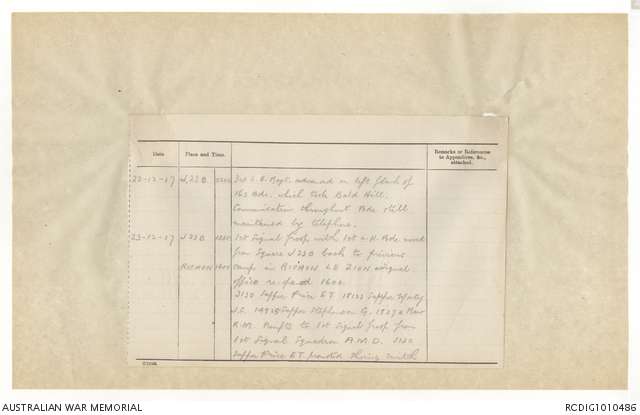 Date Place and Time. Remarks or References to Appendices, &c., attached.
22-12-17 J.22.D. 3rd L.H. Regt. advanced on left flank of
Bde. which took Bald Hill.
Communication throughout Bde. still
maintained by telephone.
23-12-17 J22D 1st Signal Troop with 1st L.H. Bde. moved
from Square J22D back to previous
camp in RICHON LE ZION signal
RICHON
office re-opened 1600.
3120 Sapper Price E.T. Sapper
J.E. Sapper Stephenson G.
R.M. to 1st Signal Troop from
1st Signal Squadron A.M.D. 3120
Sapper Price E.T. promoted
AUSTRALIAN WAR MEMORIAL
RCDIG1010486